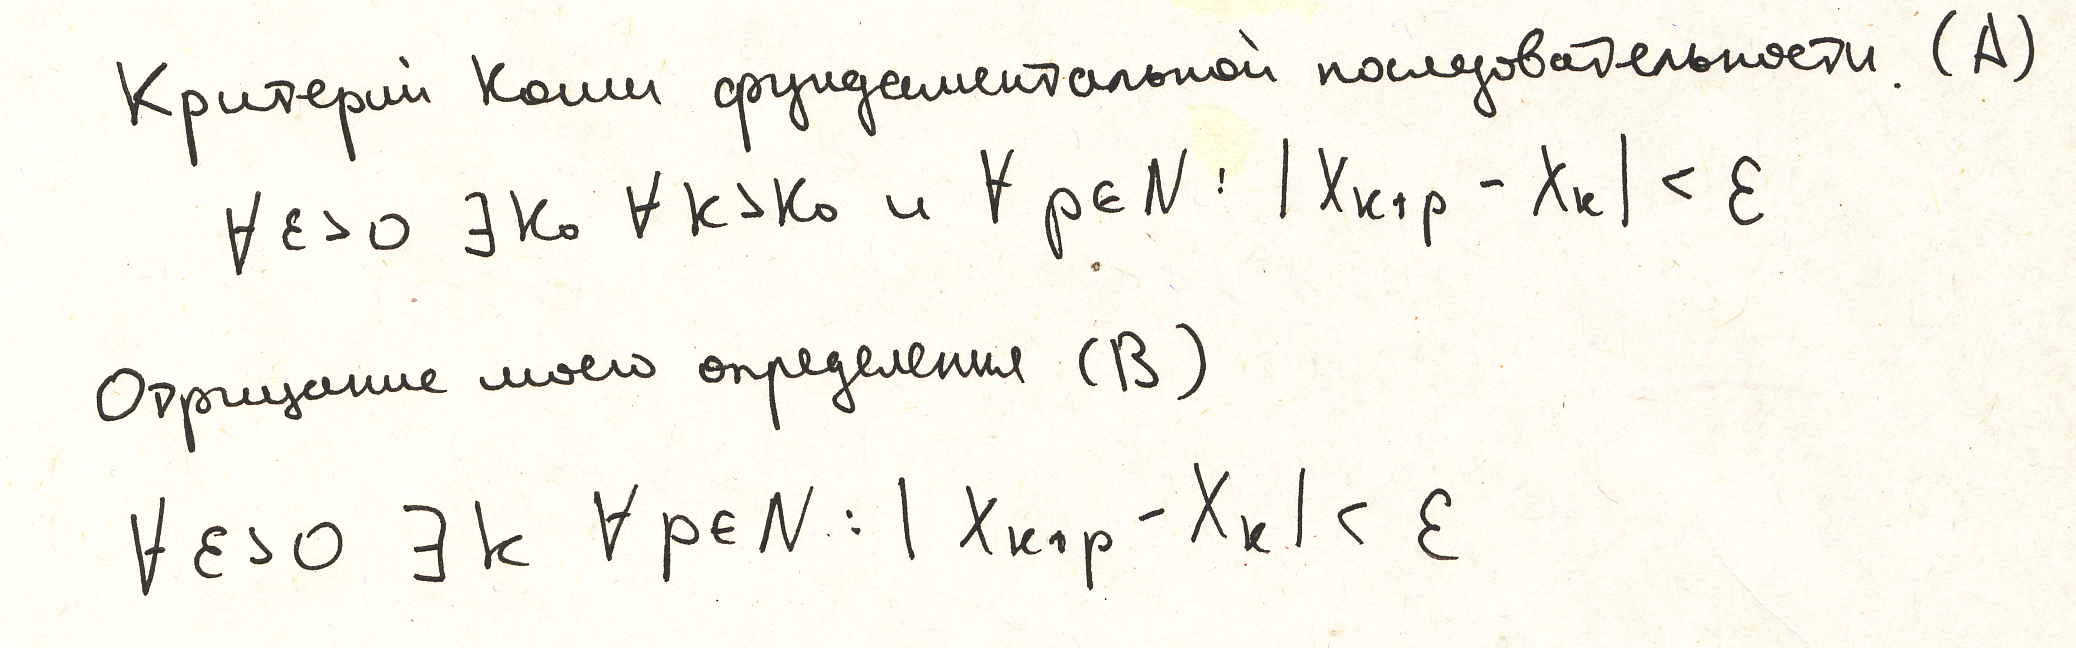 Критерий Коши фундаментальной последовательности. (А)
∀ε>0 ∃k₀ ∀k>k₀ и ∀ p∈N : |x_{k+p} - x_k| < ε
Отрицание моего определения (В)
∀ε>0 ∃k ∀p∈N : |x_{k+p} - x_k| < ε